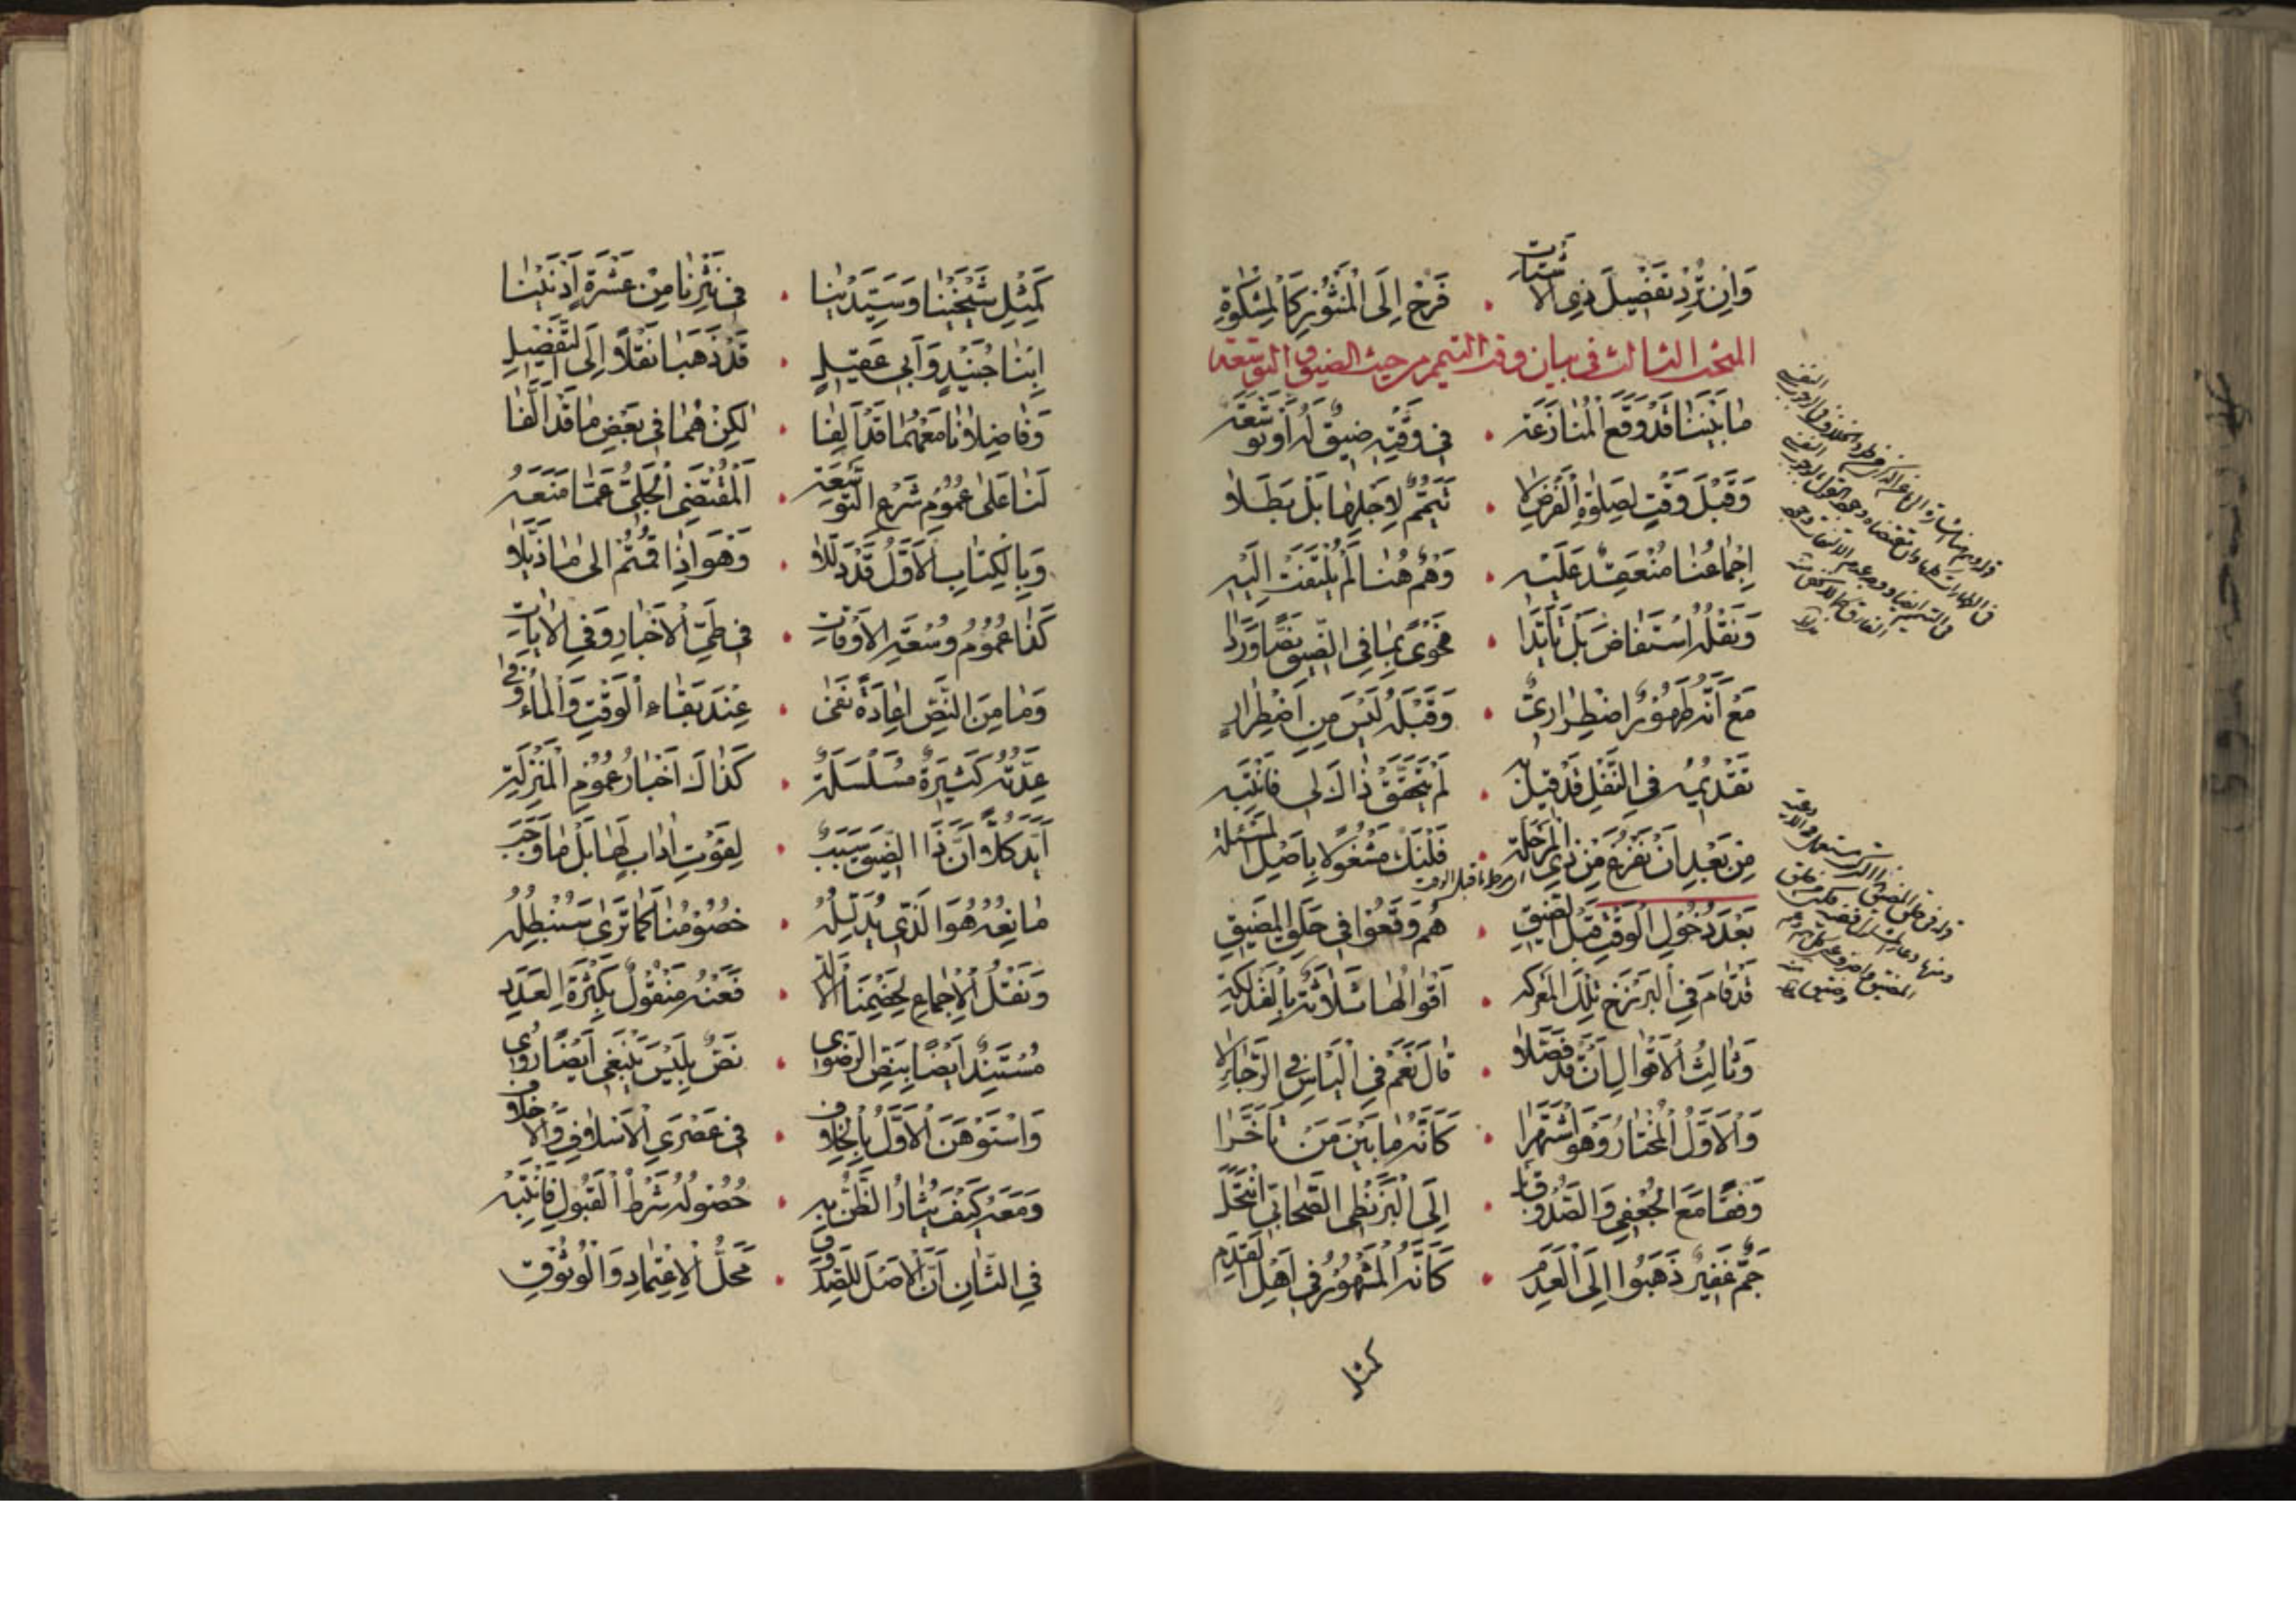 وَاِنْ تُرِدْ تَفْصِيلَ ذِي الْاَشْتَاتِ ۰ فَرُحْ اِلَى الْمَنْثُورِ كَالْمِشْكٰوةِ
المبحث الثالث في بيان وقت التيمم من حيث الضيق و التوسعة
مَا بَيْنَنَا قَدْ وَقَعَ الْمُنَازَعَة ۰ فِي وَقْتِهِ ضِيقٌ لَهُ اَوْ تَوْسَعَة
وَقَبْلَ وَقْتٍ لِصَلٰوةِ الْفَرْضِ لَا ۰ تَيَمُّمٌ لِاَجْلِهَا بَلْ بَطَلَا
اِجْمَاعُنَا مُنْعَقِدٌ عَلَيْهِ ۰ وَهُمْ هُنَا لَمْ يُلْتَفَتْ اِلَيْهِ
وَنَقْلُهُ اسْتَفَاضَ بَلْ تَأَيَّدَا ۰ فَحْوًى بِمَا فِي الضِّيقِ نَصًّا وَرَدَا
مَعْ اَنَّهُ طَهُورٌ اضْطِرَارِيٌّ ۰ وَقَبْلَهُ لَيْسَ مِنِ اضْطِرَارٍ
تَقْدِيمُهُ فِي النَّفْلِ قَدْ قِيلَ بِهِ ۰ لَمْ يَتَحَقَّقْ ذَاكَ لِي فَانْتَبِهِ
مِنْ بَعْدِ اَنْ تَفْرُغَ مِنْ ذِي الْمَرْحَلَة ۰ فَلْتَكُ مَشْغُولًا بِاَصْلِ الْمَسْئَلَة
بَعْدَ دُخُولِ الْوَقْتِ قَبْلَ الضِّيقِ ۰ هُمْ وَقَعُوا فِي حَلَقِ الْمَضِيقِ
قَدْ قَامَ فِي الْبَرْزَخِ تِلْكَ الْمَعْرَكَة ۰ اَقْوَالُهَا ثَلَاثَةٌ بِالْفَذْلَكَة
وَثَالِثُ الْاَقْوَالِ اَنْ قَدْ فَصَّلَا ۰ قَالَ نَعَمْ فِي الْيَاْسِ فِي الرَّجَاءِ لَا
وَالْاَوَّلُ الْمُخْتَارُ وَهُوَ اشْتَهَرَا ۰ كَاَنَّهُ مَا بَيْنَ مَنْ تَأَخَّرَا
وَفْقًا مَعَ الْجُعْفِي وَالصَّدُوقِ بَلْ ۰ اِلَى الْبَزَنْطِي الصَّحَابِي انْتَحَلْ
جَمٌّ غَفِيرٌ ذَهَبُوا اِلَى الْعَدَمْ ۰ كَاَنَّهُ الْمَشْهُورُ فِي اَهْلِ الْقِدَمْ
كمثل
كَمِثْلِ شَيْخَيْنَا وَسَيِّدَيْنَا ۰ فِي نَثْرِنَا مِنْ عَشْرَةٍ اَدْنَيْنَا
اِبْنَا جُنَيْدٍ وَاَبِي عَقِيلٍ ۰ قَدْ ذَهَبَا نَقْلًا اِلَى التَّفْصِيلِ
وَفَاضِلَانَا مَعَهُمَا قَدْ اَلِفَا ۰ لٰكِنْ هُمَا فِي بَعْضِ مَا قَدْ اَلَّفَا
لَنَا عَلَى عُمُومِ شَرْعِ التَّوْسَعَة ۰ اَلْمُقْتَضِي الْجَلِيُّ عَمَّا مَنَعَهُ
وَبِالْكِتَابِ الْاَوَّلُ قَدْ دَلَلَا ۰ وَهْوَ اِذَا قُمْتُمْ اِلَى مَا ذَيَّلَا
كَذَا عُمُومُ وُسْعَةِ الْاَوْقَاتِ ۰ فِي طَيِّ الْاَخْبَارِ وَفِي الْاٰيَاتِ
وَمَا مِنَ النَّصِّ اِعَادَةً نَفَى ۰ عِنْدَ بَقَاءِ الْوَقْتِ وَالْمَاءُ وَفَى
عِدَّتُهُ كَثِيرَةٌ مُسَلْسَلَة ۰ كَذَاكَ اَخْبَارُ عُمُومِ الْمَنْزِلَة
اَيَّدَ كُلًّا اَنَّ ذَا الضِّيقَ سَبَبْ ۰ لِفَوْتِ اٰدَابٍ لَهَا بَلْ مَا وَجَبْ
مَانِعُهُ هُوَ الَّذِي يُدَلِّلُهُ ۰ خُصُومُنَا كَمَا تَرَى سَنُبْطِلُهُ
وَنَقْلُ الْاِجْمَاعِ لِخَصْمِنَا الْاَلَدّ ۰ فَعَنْهُ مَنْقُولٌ بِكَثْرَةِ الْعَدَدِ
مُسْتَنِدٌ اَيْضًا بِنَصِّ الرَّضَوِي ۰ نَصٌّ بِلَيْسَ يَنْبَغِي اَيْضًا رُوِي
وَاسْتَوْهَنَ الْاَوَّلُ بِالْخِلَافِ ۰ فِي عَصْرَيِ الْاَسْلَافِ وَالْاَخْلَافِ
وَمَعَهُ كَيْفَ يُثَارُ الظَّنُّ بِهِ ۰ حُصُولُهُ شَرْطُ الْقَبُولِ فَانْتَبِهِ
فِي الثَّانِ اَنَّ الْاَصْلَ لِلصَّدُوقِ ۰ مَحَلُّ الْاِعْتِمَادِ وَالْوُثُوقِ